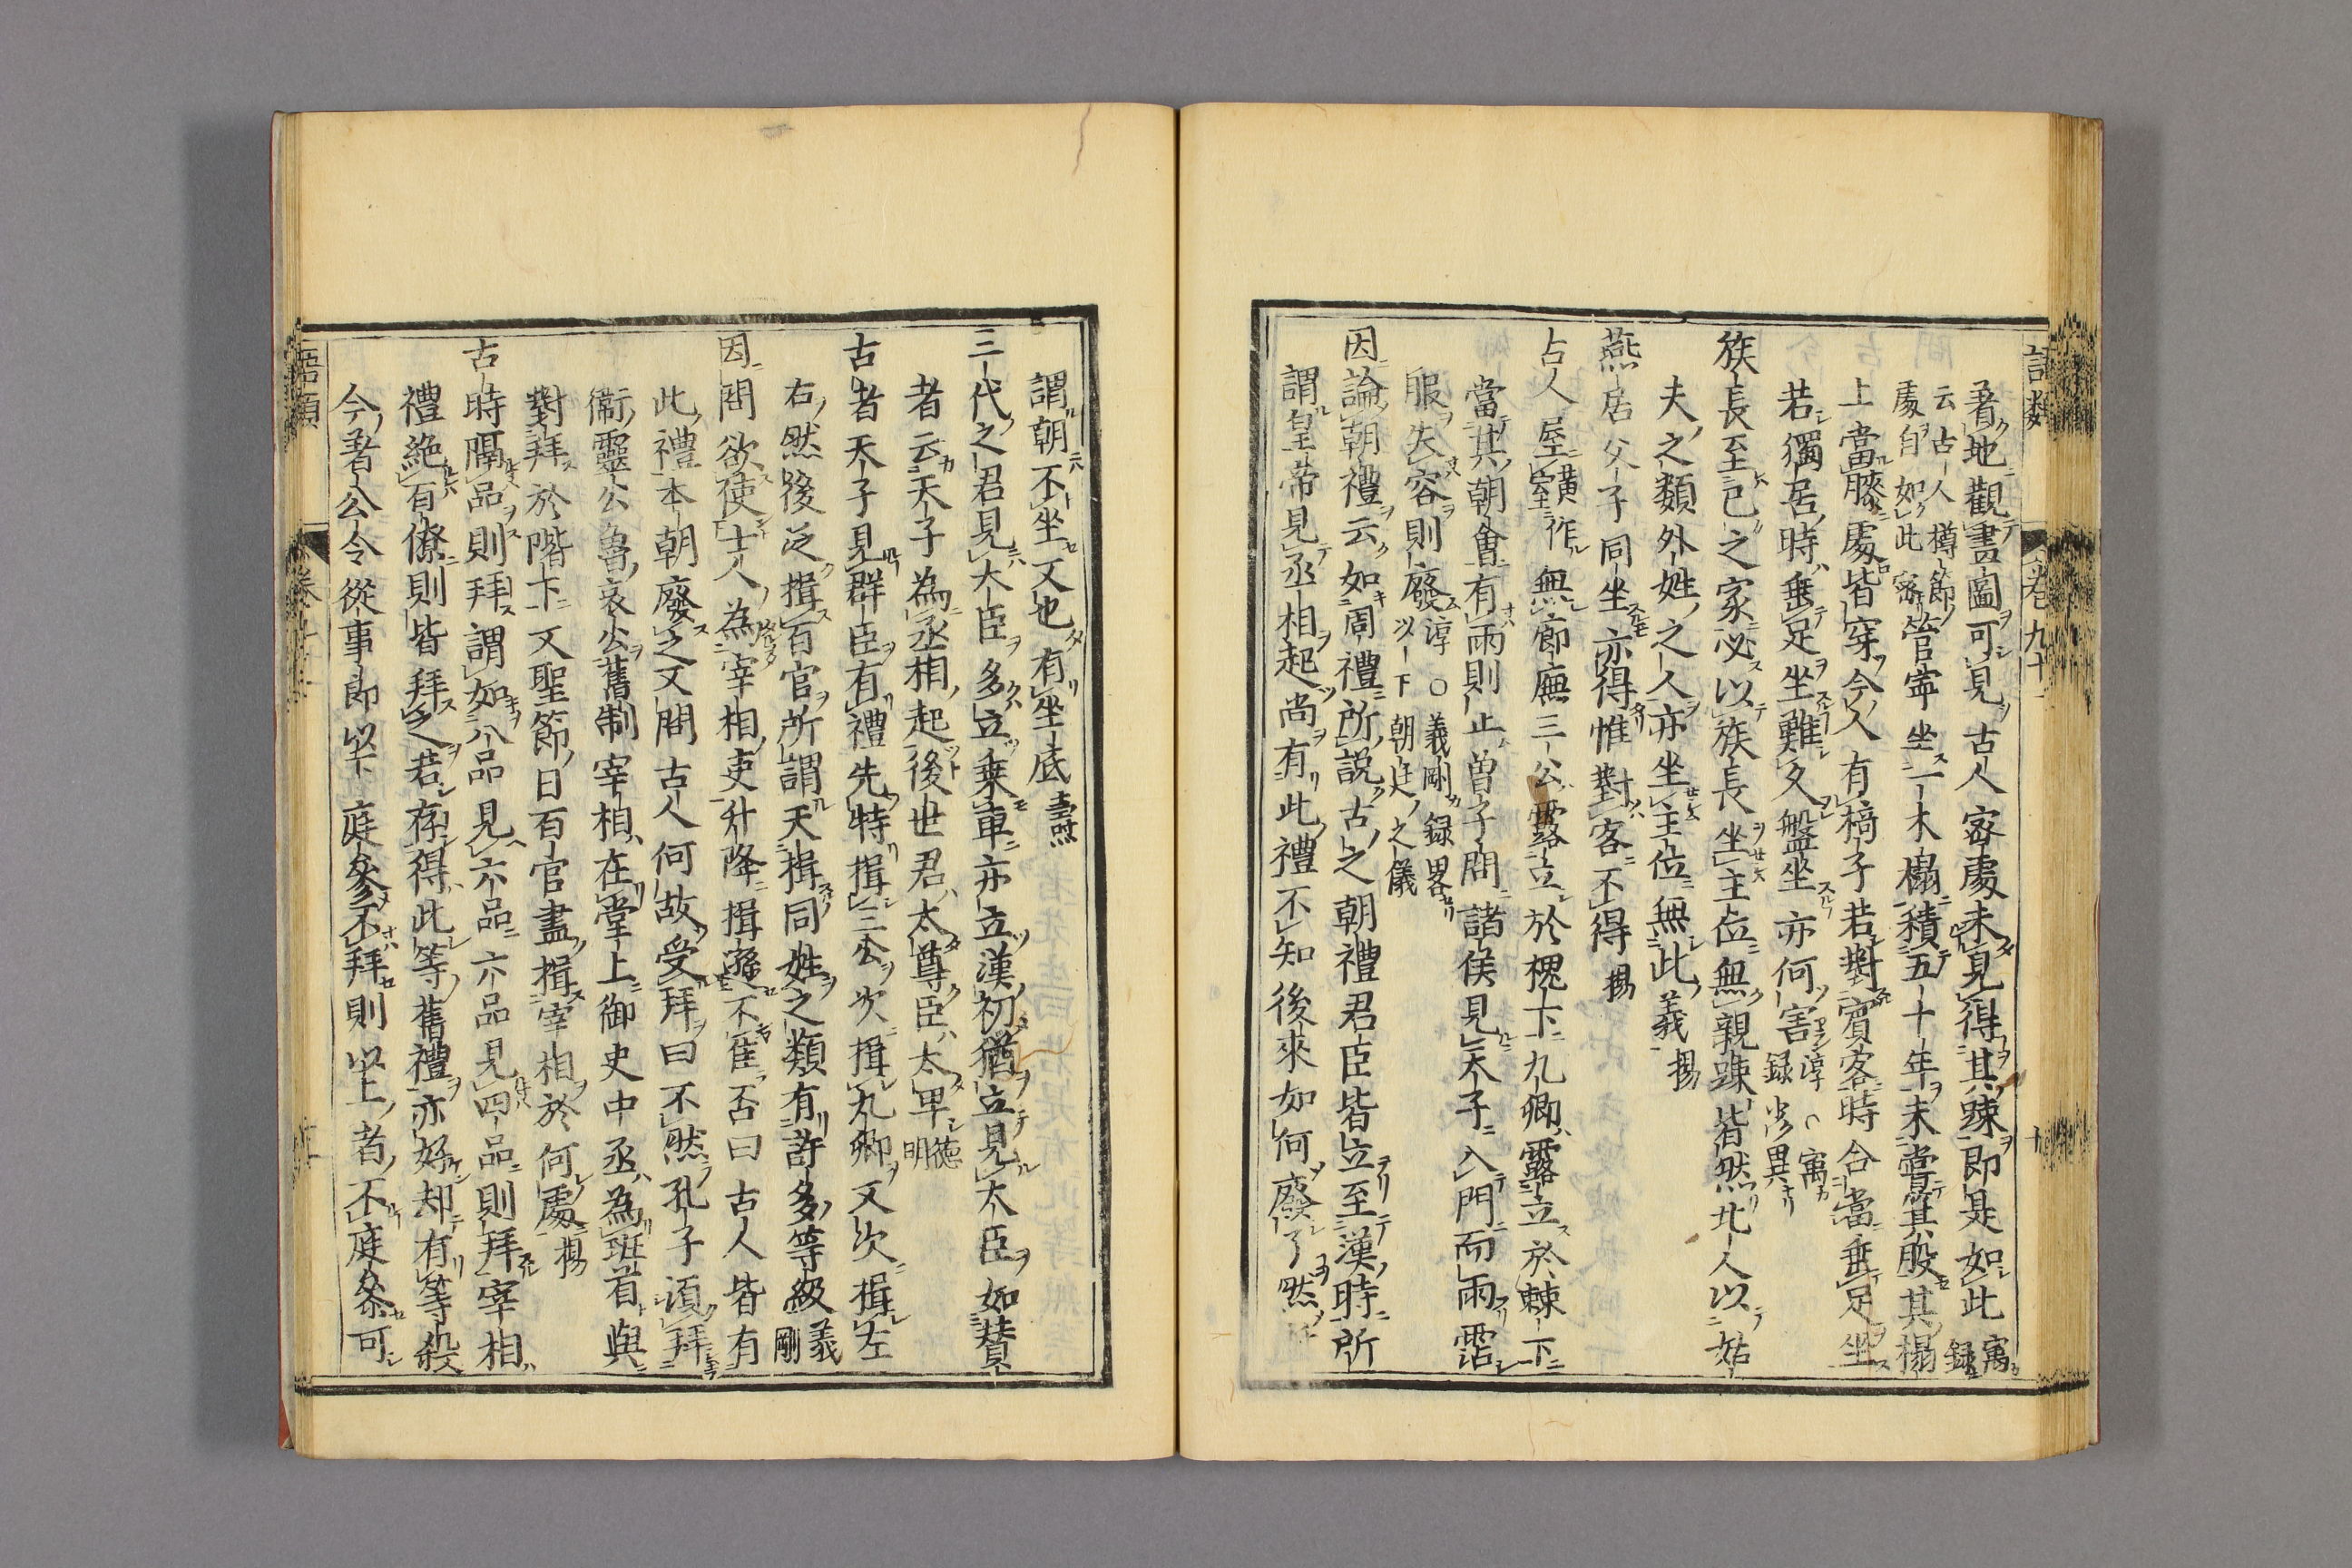 語類 卷九十一 十
者地觀畫圖可見古人密處未見得其踈即是如此寓録
云古人樽節
處自如此密管寧坐一木榻積五十年未嘗箕股其榻
上當膝處皆穿今人有槁子若對賓客時合當垂足坐
若獨居時垂足坐難久盤坐亦何害淳〇寓録少異
族長至己之家必以族長坐主位無親踈皆然北人以姑
夫之類外姓之人亦坐主位無此義揚
燕居父子同坐亦得惟對客不得揚
古人屋黄作室無廊廡三公露立於槐下九卿露立於棘下
當其朝會有雨則止曽子問諸侯見天子入門而雨霑
服失容則廢淳〇義剛録畧以下朝廷之儀
因論朝禮云如周禮所説古之朝禮君臣皆立至漢時所
謂皇帝見丞相起尚有此禮不知後來如何廢了然
謂朝不坐又也有坐底燾
三代之君見大臣多立乗車亦立漢初猶立見大臣如賛
者云天子為丞相起後世君太尊臣太卑德明
古者天子見群臣有禮先特揖三公次揖九卿又次揖左
右然後泛揖百官所謂天揖同姓之類有許多等級義剛
因問欲使士人為宰相吏升降揖遜不隹否曰古人皆有
此禮本朝廢之又問古人何故受拜曰不然孔子須拜
衞靈公魯哀公舊制宰相在堂上御史中丞為班首與
對拜於階下又聖節日百官盡揖宰相於何處揚
古時隔品則拜謂如八品見六品六品見四品則拜宰相
禮絶百僚則皆拜之若存得此等舊禮亦好却有等殺
今著公令從事郎以下庭參不拜則以上者不庭參可
語類 卷九十一 十一